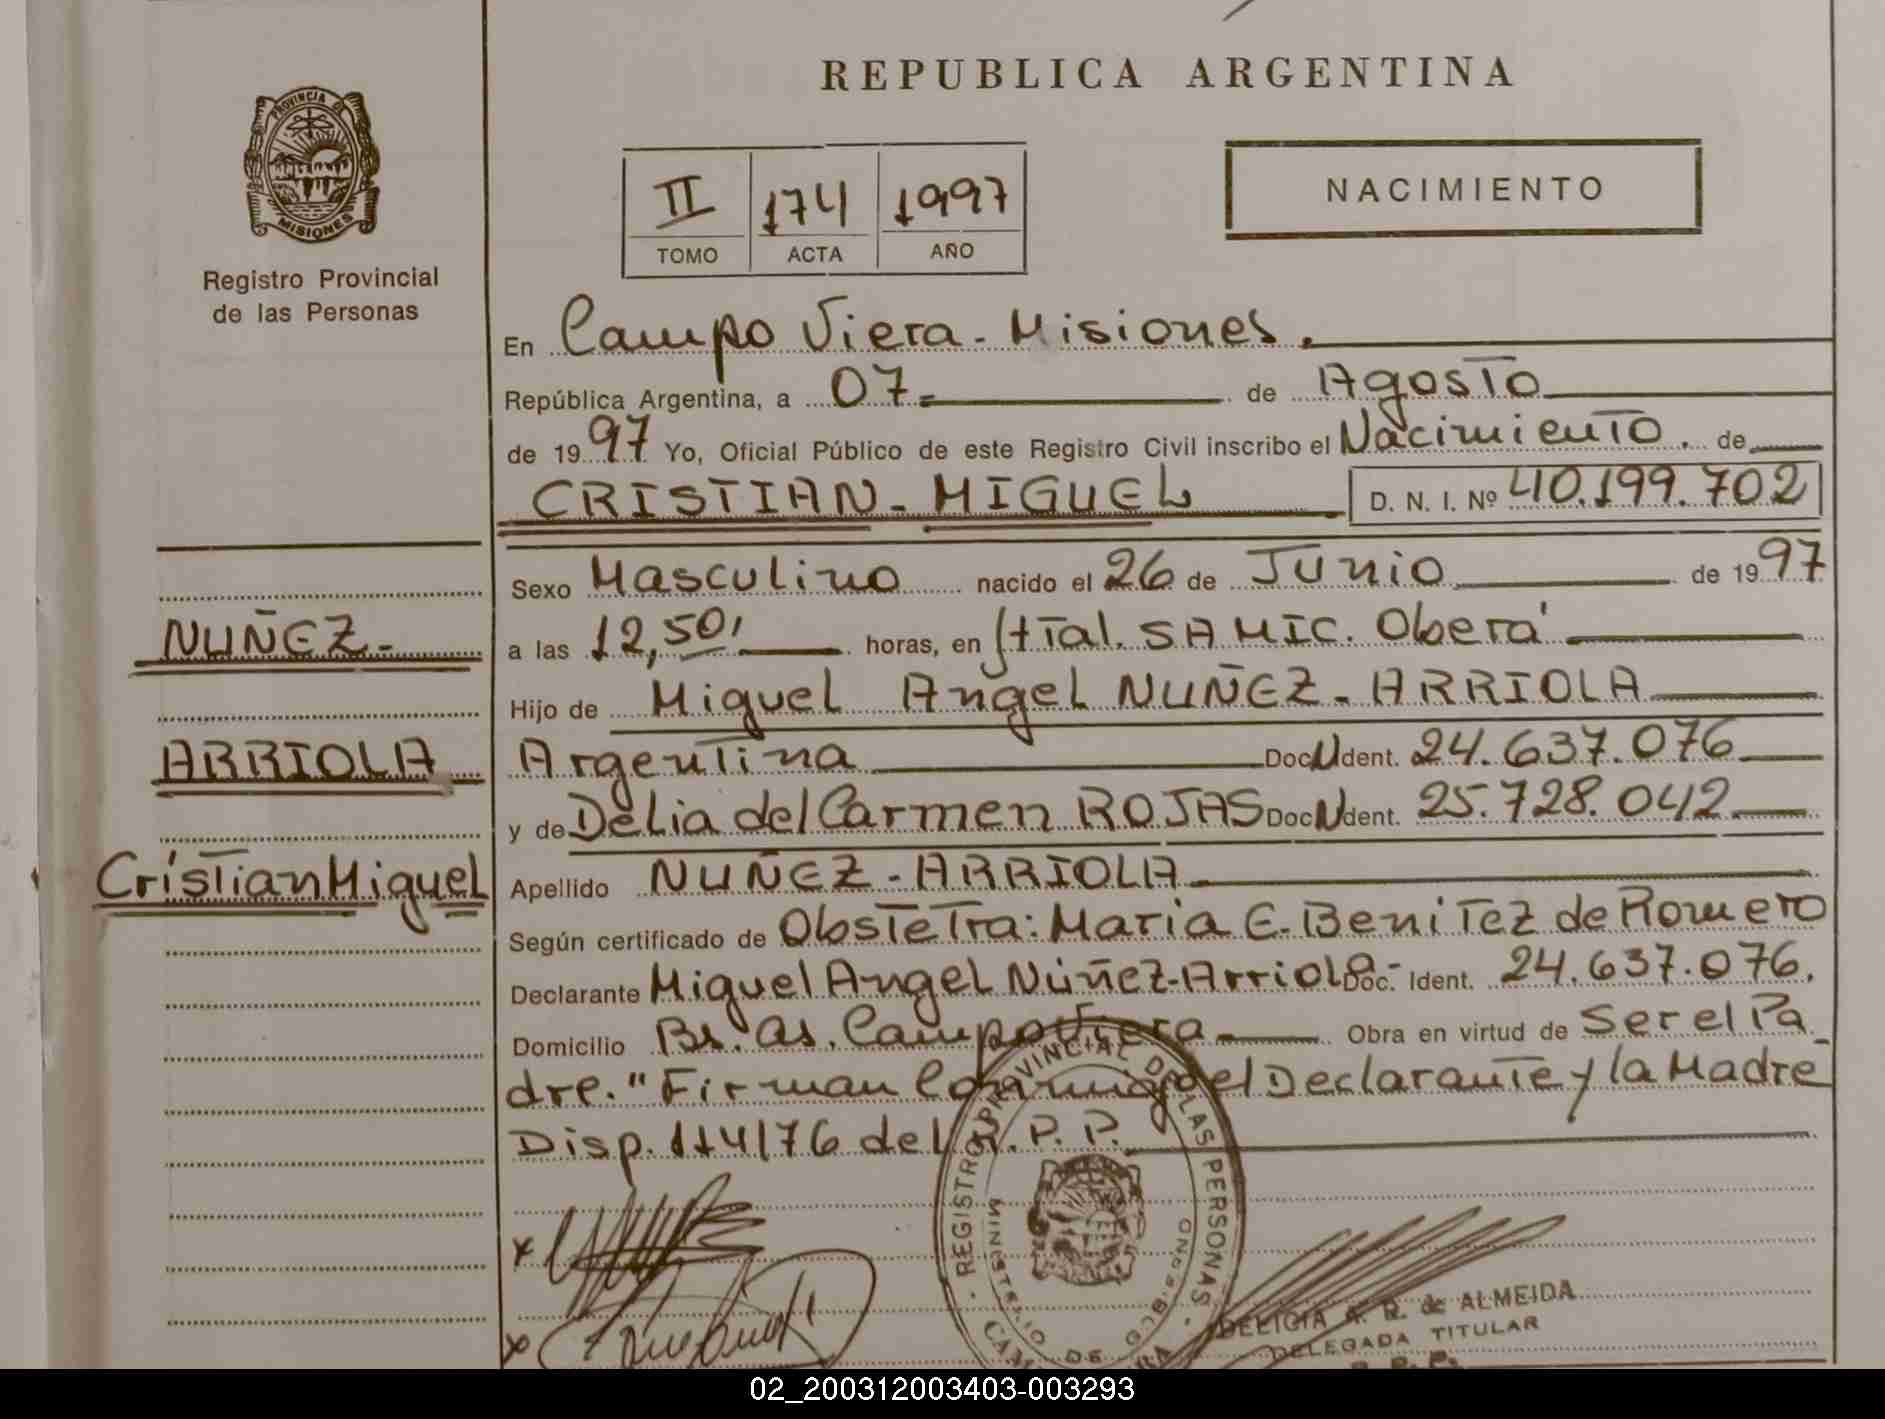 REPUBLICA ARGENTINA
PROVINCIA DE
MISIONES
Registro Provincial
de las Personas
II 174 1997
TOMO ACTA AÑO
NACIMIENTO
En Campo Viera - Misiones.
República Argentina, a 07 de Agosto
de 1997 Yo, Oficial Público de este Registro Civil inscribo el Nacimiento. de
CRISTIAN - MIGUEL D. N. I. Nº 40.199.702
Sexo Masculino nacido el 26 de Junio de 1997
NUÑEZ -
a las 12,50, horas, en Htal. SAMIC. Oberá
Hijo de Miguel Angel NUÑEZ - ARRIOLA
ARRIOLA
Argentina Doc N Ident. 24.637.076
y de Delia del Carmen ROJAS Doc N Ident. 25.728.042
Cristian Miguel
Apellido NUÑEZ - ARRIOLA
Según certificado de Obstetra: Maria E. Benitez de Romero
Declarante Miguel Angel Núñez-Arriola- Doc. Ident. 24.637.076.
Domicilio Bs. As. Campo Viera Obra en virtud de Ser el Pa
dre. "Firman Conmigo el Declarante y la Madre
Disp. 114/76 del R.P.P.
REGISTRO PROVINCIAL DE LAS PERSONAS
MINISTERIO DE GOBIERNO
DELICIA A. R. de ALMEIDA
DELEGADA TITULAR
R. P. P.
02_200312003403-003293